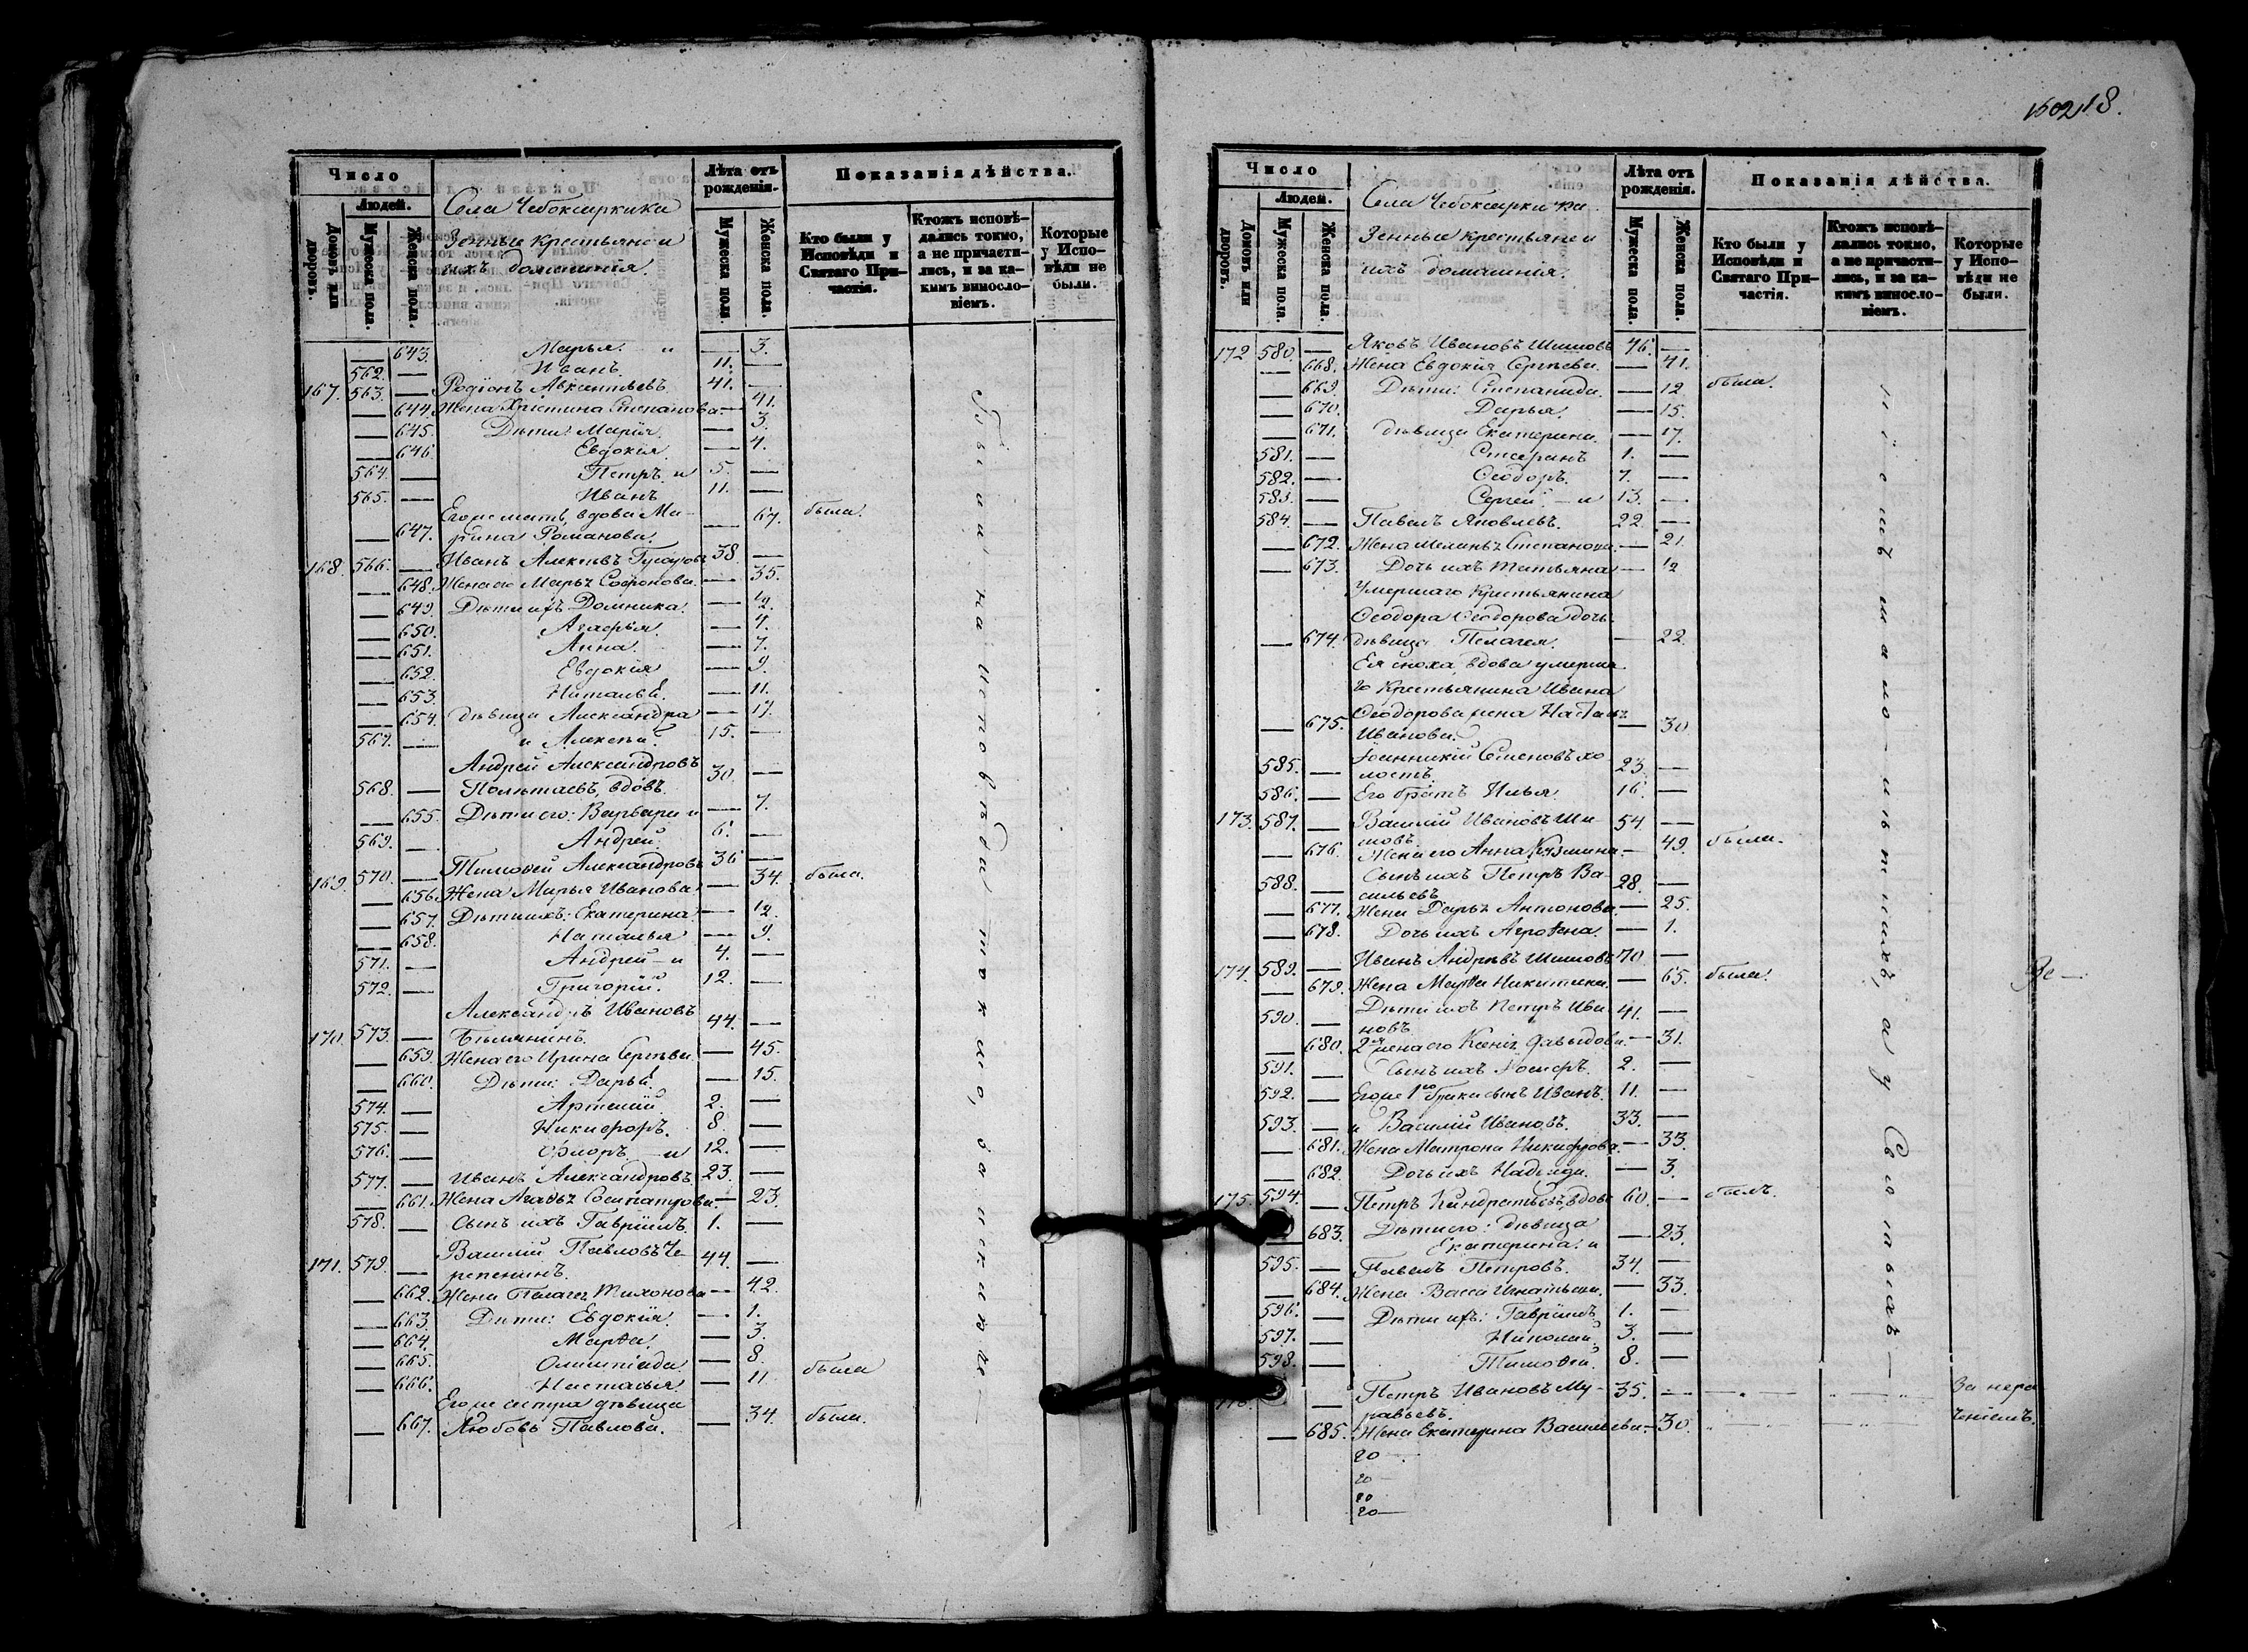 150218.
Число
Людей.
Домовъ или дворовъ.
Мужеска пола.
Женска пола.
Села Чебоксаркика
зенные крестьяне и
ихъ домашнія.
Лѣта отъ рожденія.
Мужеска пола.
Женска пола.
Показанія дѣйства.
Кто были у Исповѣди и Святаго Причастія.
Ктожъ исповѣдались токмо, а не причастились, и за какимъ винословіемъ.
Которые у Исповѣди не были.
643. Марья и — 3.
562. — Иванъ 11. —
167. 563. — Родіонъ Авкентьевъ 41. —
— 644. Жена Христина Степанова — 41.
— 645. Дѣти: Марія — 3.
— 646. Евдокія — 4.
564. — Петръ и 5. —
565. — Иванъ 11. —
Его же мать, вдова Ма-
— 647. рина Романова. — 67. была.
168. 566. — Иванъ Алексѣевъ 38 —
— 648. Жена его Марья Софонова. — 35.
— 649. Дѣти ихъ Домника. — 1/2.
— 650. Агафья. — 4.
— 651. Анна. — 7.
— 652. Евдокія — 9.
— 653. Наталья. — 11.
— 654. дѣвица Александра — 17.
567. — и Алексѣй. 15. —
Андрей Александровъ
568. — Полѣтаевъ, вдовъ. 30. —
— 655. Дѣти его: Варвара и — 7.
569. — Андрей. 6. —
169. 570. — Тимоѳей Александровъ 36 —
— 656. Жена Марья Иванова — 34. была.
— 657. Дѣти ихъ: Екатерина — 1/2.
— 658. Наталья — 9.
571. — Андрей — и 4. —
572. — Григорій. 12. —
Александръ Ивановъ
170. 573. — Бѣлянинъ. 44. —
— 659. Жена его Ирина Сергѣева — 45.
— 660. Дѣти: Дарья. — 15.
574. — Артемій. 2. —
575. — Никифоръ. 8. —
576. — Флоръ — и 12. —
577. — Иванъ Александровъ 23. —
— 661. Жена Агаѳья Сосипатрова — 23.
578. — Сынъ ихъ Гавріилъ 1. —
171. 579. — Василій Павловъ Че- 44. —
репенинъ.
— 662. Жена Пелагея Тихонова — 42.
— 663. Дѣти: Евдокія. — 1.
— 664. Марѳа. — 3.
— 665. Олимпіада — 8.
— 666. Наталья. — 11. была
Его же сестра дѣвица
— 667. Любовь Павлова. — 34. была.
Были на исповѣди токмо,
Число
Людей.
Домовъ или дворовъ.
Мужеска пола.
Женска пола.
Села Чебоксаркика
зенные крестьяне и
ихъ домашнія.
Лѣта отъ рожденія.
Мужеска пола.
Женска пола.
Показанія дѣйства.
Кто были у Исповѣди и Святаго Причастія.
Ктожъ исповѣдались токмо, а не причастились, и за какимъ винословіемъ.
Которые у Исповѣди не были.
172 580. — Яковъ Ивановъ Шишовъ 46. —
— 668. Жена Евдокія Сергѣева. — 41.
— 669. Дѣти: Степанида. — 12. была.
— 670. Дарья. — 15.
— 671. дѣвица Екатерина. — 17.
581. — Стефанъ 1. —
582. — Ѳеодоръ. 7. —
583. — Сергей — и 13. —
584. — Павелъ Яковлевъ. 22. —
— 672. Жена Степанова. — 21.
— 673. Дочь ихъ Татьяна — 1/2
Умершаго крестьянина
Ѳеодора Ѳеодорова дочь
— 674. дѣвица Пелагея. — 22.
Ея сноха, вдова умерша-
го крестьянина Ивана
— 675. Ѳеодорова жена Настасья — 30
Иванова.
585. — Іоанникій Семеновъ хо 23. —
лостъ.
586. — Его братъ Илья. 16. —
173. 587. — Василій Ивановъ Ши- 54. —
шовъ.
— 676. Жена его Анна Кузмина. — 49. была.
588. — Сынъ ихъ Петръ Ва- 28. —
сильевъ
— 677. Жена Дарья Антонова — 25.
— 678. Дочь ихъ Агроѳена. — 1.
174. 589. — Иванъ Андрѣевъ Шишовъ 70 —
— 679. Жена Марѳа Никитина. — 65. была.
590. — Дѣти ихъ Петръ Ива 41. —
новъ
— 680. 2я жена его Ксенія Давыдова. — 31.
591. — Сынъ ихъ Іосифъ. 2. —
592. — Его же 1го брака сынъ Иванъ. 11. —
593. — и Василій Ивановъ. 33. —
— 681. Жена Матрона Никифорова. — 33.
— 682. Дочь ихъ Надежда. — 3.
175. 594. — Петръ Кондратьевъ, вдовъ 60. — былъ.
— 683. Дѣти его: дѣвица — 23.
Екатерина. и
595. — Павелъ Петровъ. 34. —
— 684. Жена Васса Игнатьева. — 33.
596. — Дѣти ихъ: Гавріилъ. 1. —
597. — Николай. 3. —
598. — Тимоѳей. 8. —
176. — Петръ Ивановъ Му- 35. — За нера
равьевъ.
— 685. Жена Екатерина Васильева. — 30. ченіемъ.
20 —
20 —
20
20 —